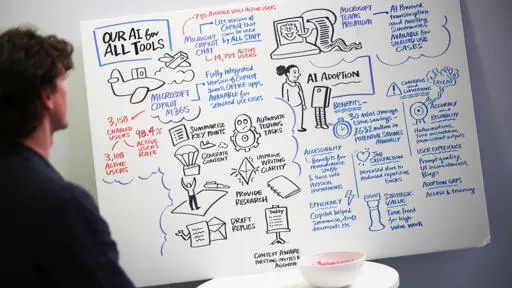 OUR AI for
ALL TOOLS
735 AVERAGE DAILY ACTIVE USERS
MICROSOFT
COPILOT
CHAT
Lite version of
Copilot that
can be used
by ALL STAFF
14,759 ACTIVE
USERS
MICROSOFT
TEAMS
PREMIUM
AI Powered
transcription
and meeting
summaries
AVAILABLE for
SELECTED USE
CASES
MICROSOFT
COPILOT
M365
Fully integrated
version of Copilot
across Office apps,
AVAILABLE for
selected use cases
3,158
ENABLED
USERS
98.4%
ACTIVE
USERS
RATE
3,108
ACTIVE
USERS
SUMMARISE
KEY POINTS
AUTOMATE
TEDIOUS
TASKS
GENERATE
CONTENT
IMPROVE
WRITING
CLARITY
PROVIDE
RESEARCH
DRAFT
REPLIES
Today
CONTEXT AWARE
MEETING INVITES &
AGENDA
AI ADOPTION
BENEFITS
30 mins average
time savings
£6.32 million in
POTENTIAL SAVINGS
ANNUALLY
ACCESSIBILITY
Benefits for
neurodiverse
staff
& those with
PHYSICAL
IMPAIRMENTS
JOB
SATISFACTION
Increased due to
reduced repetitive
tasks
EFFICIENCY
Copilot helped
Summarise, draft
documents etc
STRATEGIC
VALUE
Time freed for
high-value
work
CONCERNS and
LIMITATIONS
ACCURACY
&
RELIABILITY
Hallucinations,
USER EXPERIENCE
Prompt quality,
UI inconsistencies,
Bugs
ADOPTION GAPS
Access & training